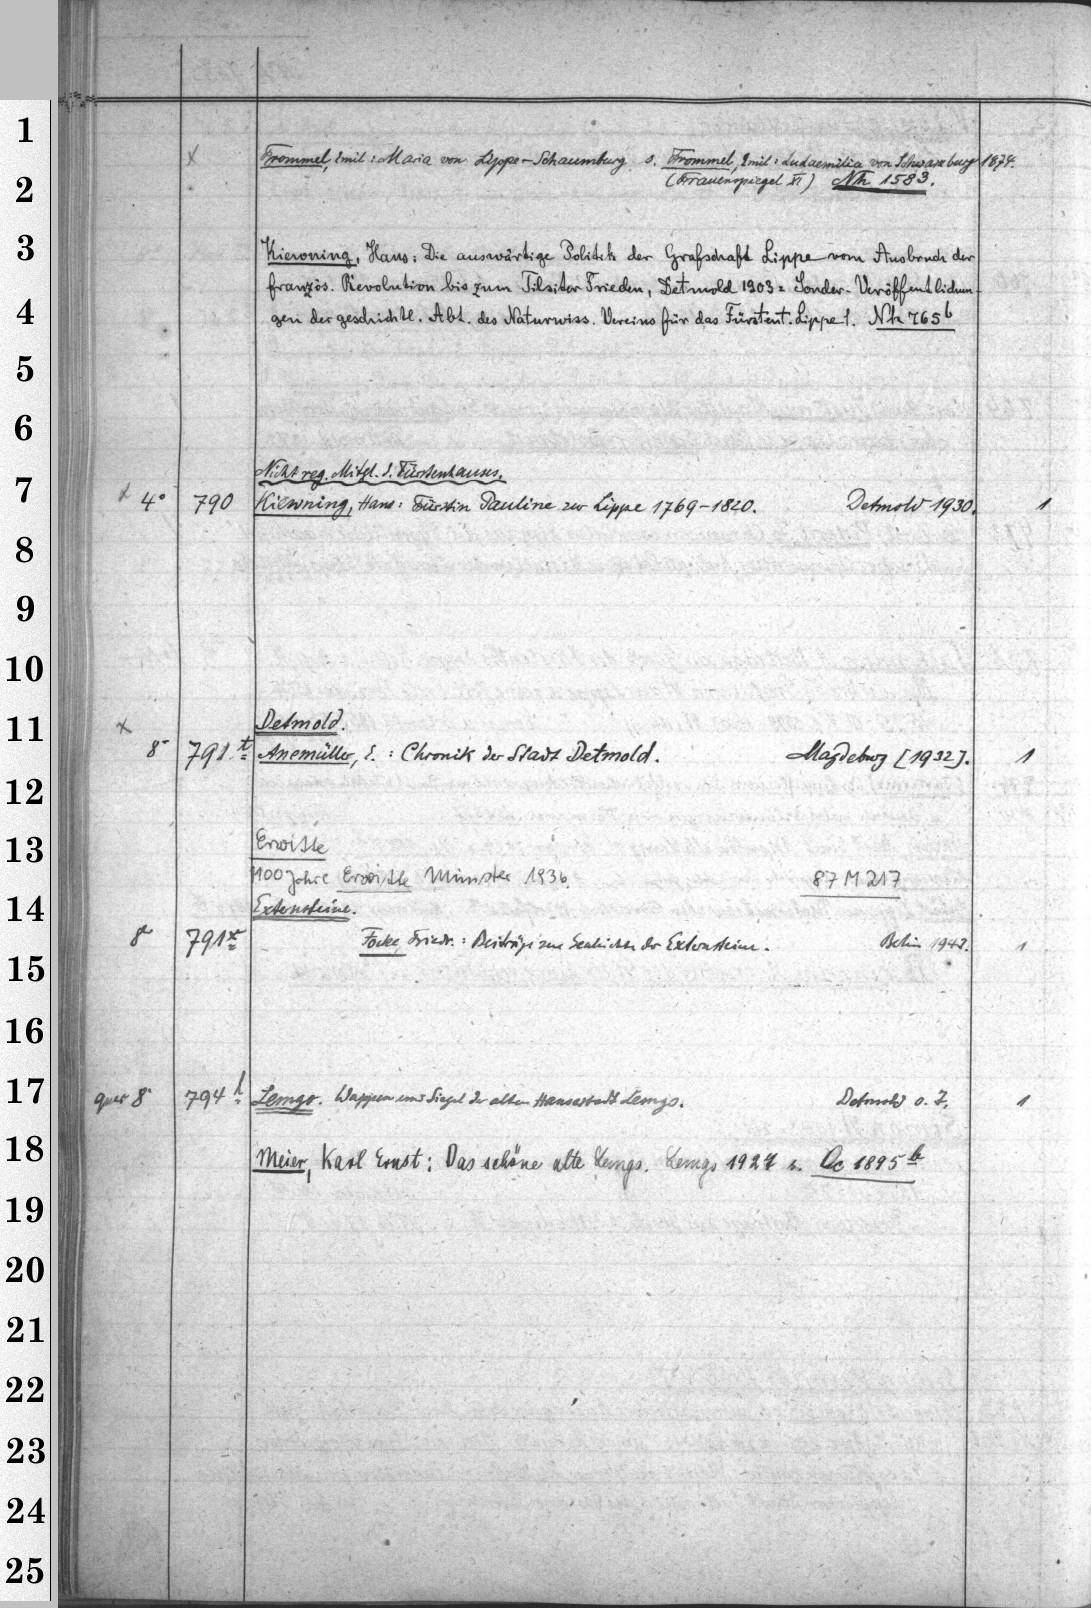 1
2
3
4
5
6
7
8
9
10
11
12
13
14
15
16
17
18
19
20
21
22
23
24
25
x Frommel, Emil: Maria von Lippe-Schaumburg s. Frommel, Emil: Ludaemilia von Schwarzburg 1874.
(Frauenspiegel II) Nh 1583.
Kiewning, Hans: Die auswärtige Politik der Grafschaft Lippe vom Ausbruch der
französ. Revolution bis zum Tilsiter Frieden, Detmold 1903 = Sonder-Veröffentlichun-
gen der geschichtl. Abt. des Naturwiss. Vereins für das Fürstent. Lippe 1. Nh 765b
Nicht reg. Mitgl. d. Fürstenhauses.
x 4° 790 Kiewning, Hans: Fürstin Pauline zur Lippe 1769-1820. Detmold 1930. 1
x Detmold.
8° 791t Anemüller, E.: Chronik der Stadt Detmold. Magdeburg [1932]. 1
Erwitte
1100 Jahre Erwitte Münster 1936. 87 M 217
Externsteine.
8° 791x Focke, Friedr.: Beiträge zur Geschichte der Externsteine. Berlin 1942. 1
quer 8° 794l Lemgo. Wappen und Siegel der alten Hansestadt Lemgo. Detmold o. J. 1
Meier, Karl Ernst: Das schöne alte Lemgo. Lemgo 1927 s. Oc 1895b